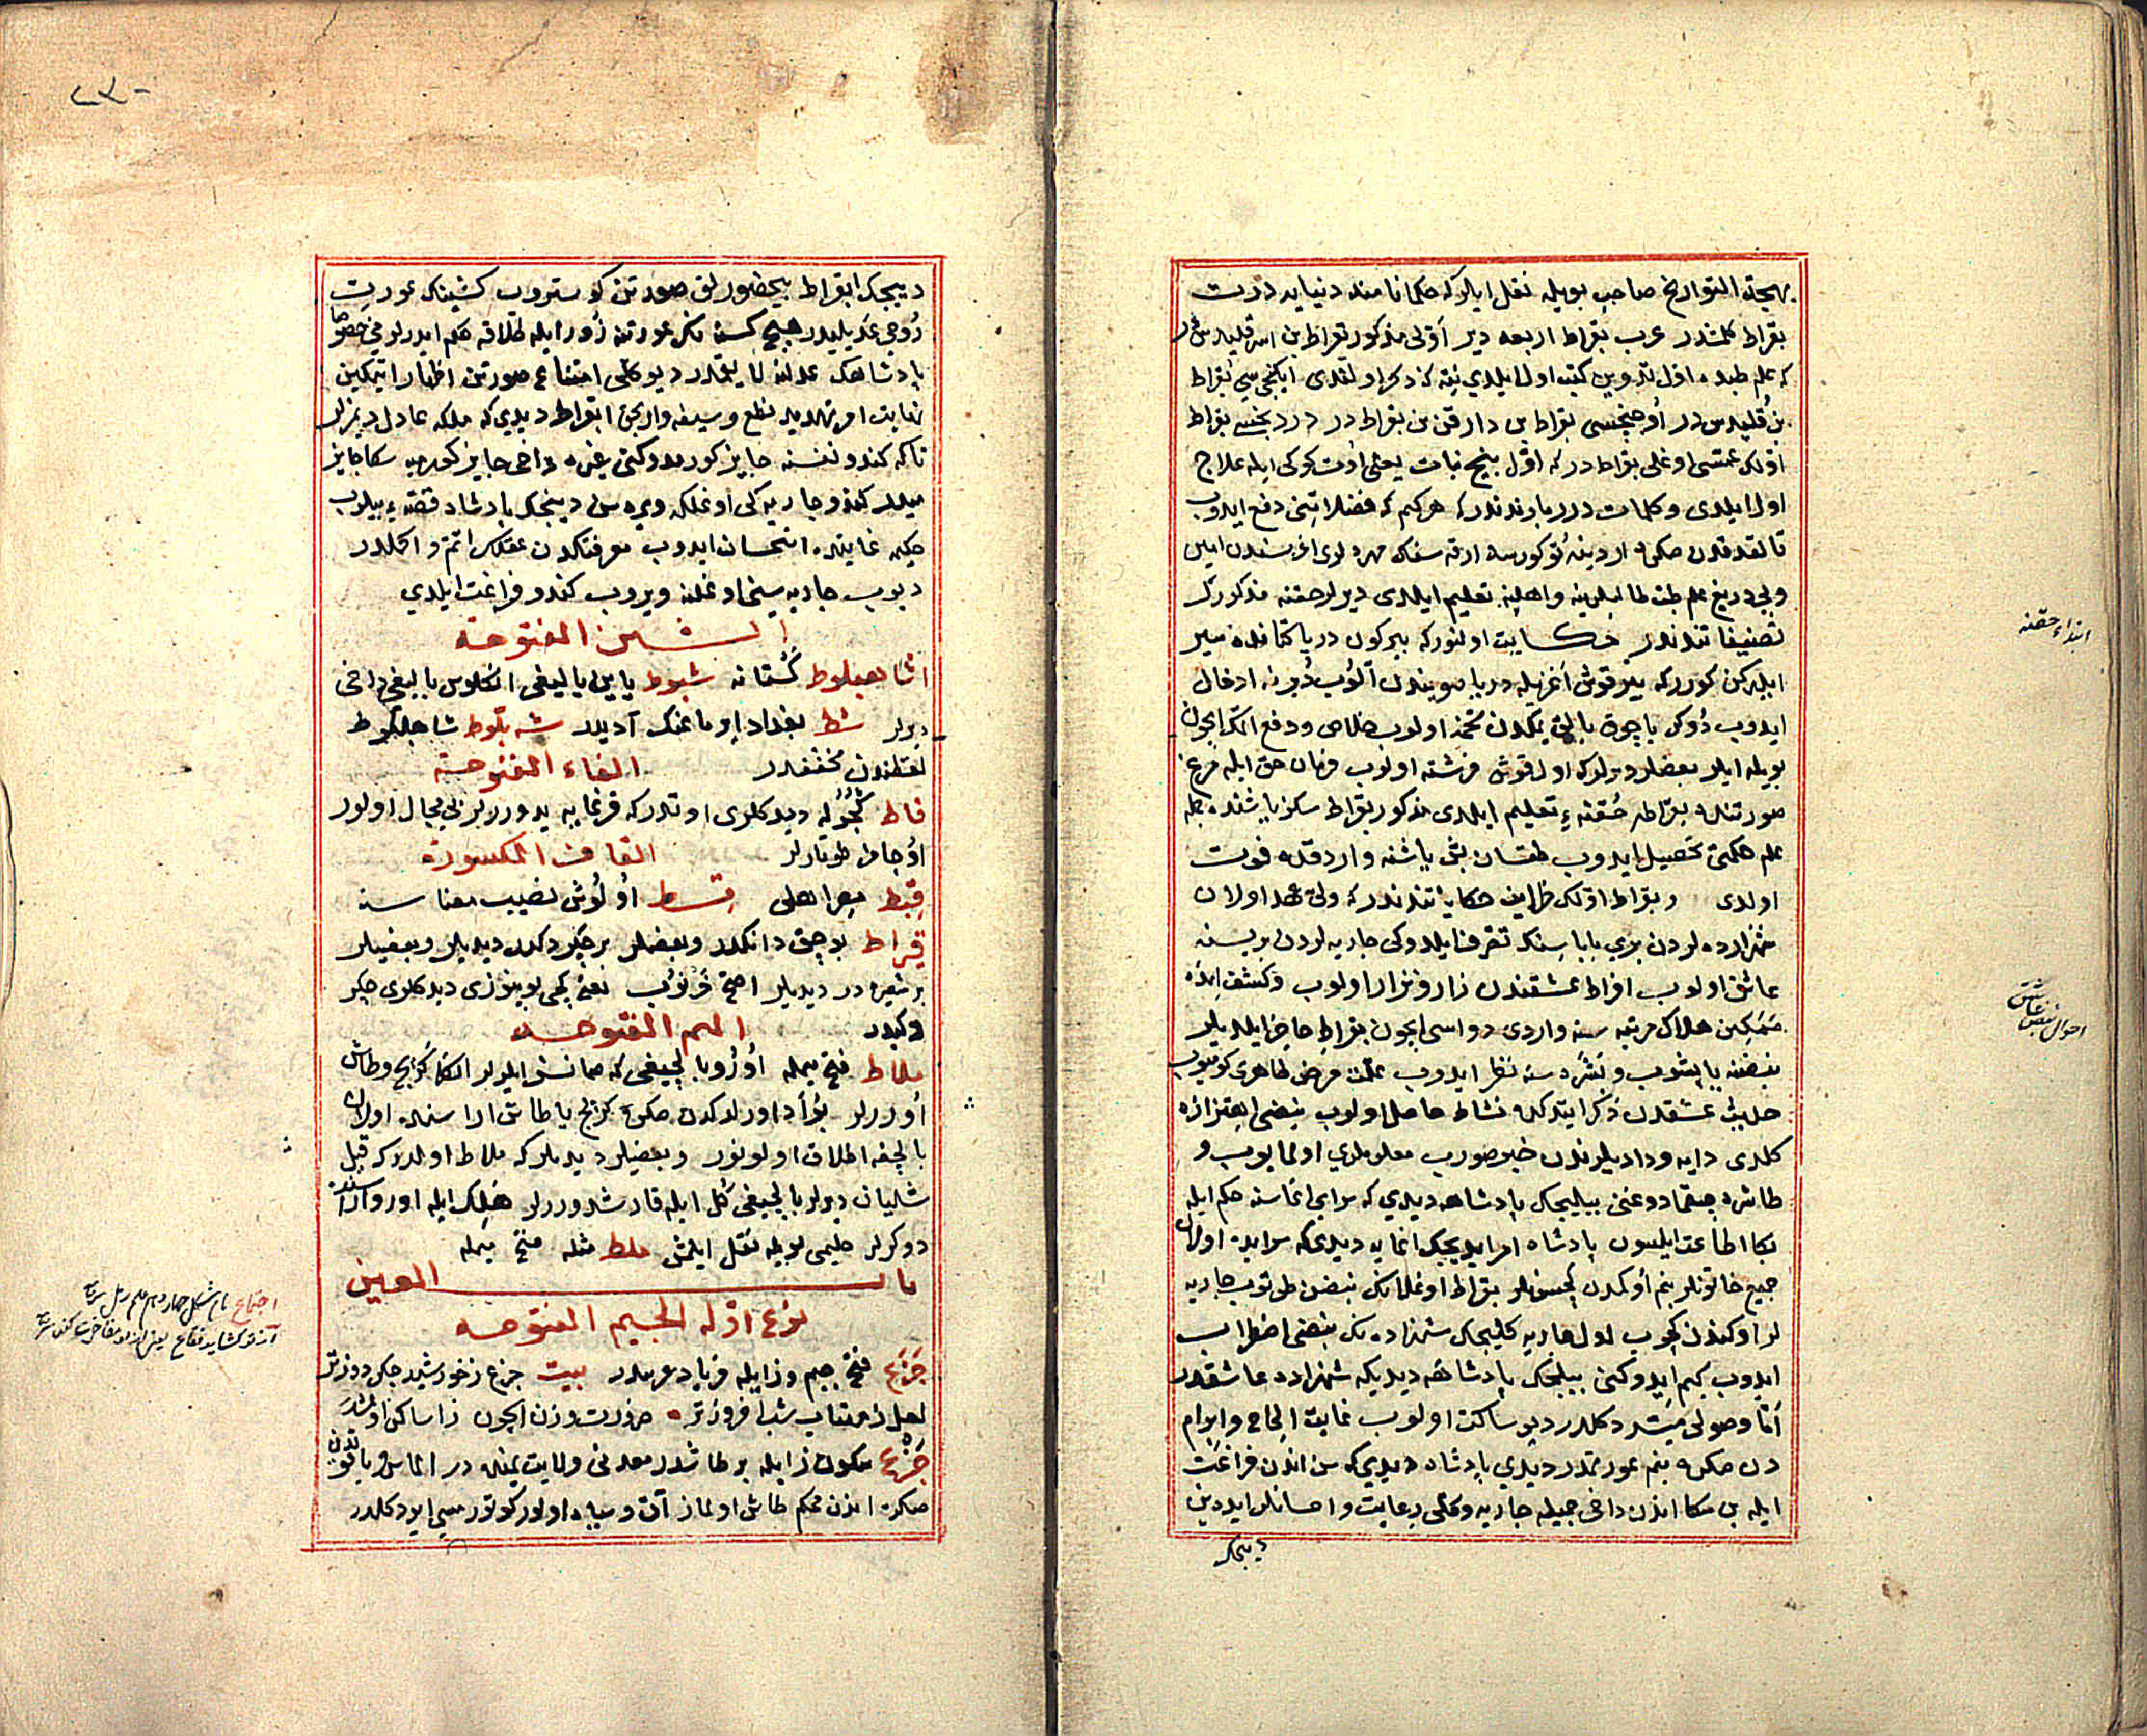 بهجة التواريخ صاحبى بويله نقل ايلر كه حكما نامنده دنيايه درت
بقراط كلمشدر عرب بقراط اربعه دير اوّلى مذكور بقراط بن اسقليدس
كه علم طبده اوّل تدوين كتب اول ايلدى نيته كه ذكر اولندى ايكنجيسى بقراط
بن قليدس در اوچنجيسى بقراط بن دارقن بن بقراط در دردنجيسى بقراط
اوّلك عمّسى اوغلى بقراط در كه اوّل بيخ نبات يعنى اوت كوكى ايله علاج
اول ايلدى وكلمات درربارندندر كه هر كيم كه فضلاتنى دفع ايدوب
قالقدقدن صكره اردينه
وبى دريغ علم طب طالبلرينه واهلينه تعليم ايلدى ديرلر حقنه مذكورك
تصنيفاتندندر حكايت اولنور كه بير كون دريا كنارنده سير
ايلركن كورر كه بير قوش اغزيله دريا صويندن آلوب دبرنه ادخال
ايدوب دوكر ياچوق بالق يمكدن تخمه اولوب خلاص ودفع الم ايچون
بويله ايلر بعضلر ديرلر كه اول قوش فرشته اولوب فرمان حق ايله مرغ
صورتنده بقراطه حقنه ءِ تعليم ايلدى مذكور بقراط سكز ياشنده جمله
علم حكمتى تحصيل ايدوب طقسان بش ياشنه واردقده فوت
اولدى وبقراط اوّلك ظرايف حكاياتندندر كه ولى عهد اولان
شهزاده لردن برى باباسنك تصرف ايلدوكى جاريه لردن بريسنه
عاشق اولوب افراط عشقندن زار ونزار اولوب وكشف ايده
ممكين هلاك مرتبه سنه واردى دواسى ايچون بقراط حاضر ايلديلر
نبضنه ياپشوب وبشره سنه نظر ايدوب علّت مرض ظاهرى كورميوب
حديث عشقدن ذكر ايتدكده نشاط حاصل اولوب نبضى اهتزازه
كلدى دايه ودادليلرندن خبر صورب معلوملرى اولمايوب و
طاشره چيقمادوغنى بيليجك پادشاهه ديدى كه سراى اغاسنه حكم ايله
بكا اطاعت ايلسون پادشاه امر ايديجك اغايه ديدى كه سرايده اولان
جميع خاتونلر بنم اوكمدن كچسونلر بقراط اوغلانك نبضن طوتوب جاريه
لر اوكندن كچوب اول جاريه كليجك شهزاده نك نبضى اضطراب
ايدوب كيم ايدوكنى بيليجك پادشاهه ديديكه شهزاده عاشقدر
امّا وصولى ميسّر دكلدر ديو ساكت اولوب غايت الحاح وابرام
دن صكره بنم عورتمدر ديدى پادشاه ديدى كه سن اندن فراغت
ايله بن سكا اندن داخى جميله جاريه وكلى رعايت واحسانلر ايده ين
ديجك
ابتداء حقنه
احوال نبض عاشق
ديجك ابقراط بيحضورلق صورتن كوستروب كشينك عورت
روحى عديليدر هيچ كسنه نك عورتنه زور ايله طلاقه حكم ايدرلر مى خصوصا
پادشاهك عدلنه لايقمدر ديو كلى امتناع صورتن اظهار ايتمكين
نهايت امر تهديد نطع وسيفه وارجق ابقراط ديدى كه ملكه عادل ديمزلر
تاكه كندو نفسنه جايز كورمدوكنى غيره داخى جايز كورميه سكا جايز
ميدر كندو جاريه كى اوغلكه ويره سن ديجك پادشاه قصّه ءِ بيلوب
حكيمه غايتده استحسان ايدوب معرفتكدن عقلك اتم و اكملدر
ديوب جاريه سنى اوغلنه ويروب كندو فراغت ايلدى
الشين المفتوحة
شاهبلوط كستانه شبوط يايين باليغى انكلوس باليغى داخى
ديرلر شط بغداد ايرماغنك آديدر شه بلوط شاهبلوط
لفظندن مخففدر الفاء المفتوحة
فاط كجوله ديدكلرى اوتدر كه قرغايه يدررلر بى مجال اولور
اوچامز طوتارلر القاف المكسورة
قبط مصر اهلى قسط اولوش نصيب معناسنه
قيراط بوچق دانكدر وبعضلر بر چكردكدر ديديلر وبعضيلر
بر شعيره در ديديلر اصح خرنوب يعنى كچى بوينوزى ديدكلرى چكر
دكيدر الميم المفتوحة
ملاط فتح ميمله اوزو بالچيغى كه صمانسز ايلرلر انكله كرپج وطاش
اوررلر بو اد اورلدكدن صكره كرپج يا طاش اراسنده اولان
بالچغه اطلاق اولونور وبعضيلر ديديلر كه ملاط اولدر كه قبل
شاليان ديرلر بالچيغى كل ايله قارشدوررلر
دوكرلر حليمى بويله نقل ايلمش ملط مثله فتح ميمله
باب العين
نوع اوّله الجيم المفتوحه
جزع فتح جيم وزايله فرياد عربيدر بيت جزع ز خورشيد جكر دوزتر
لعل ز مهتاب شب افروزتر ضرورت وزن ايچون زا ساكن اولمشدر
جزع سكون زايله بر طاشدر معدنى ولايت يمنده در الماس وياقوتدن
صكره اندن محكم طاش اولماز آق وسياه اولور كوتورمسى ايو دكلدر
اجتماع نام شكل چهاردهم علم رمل